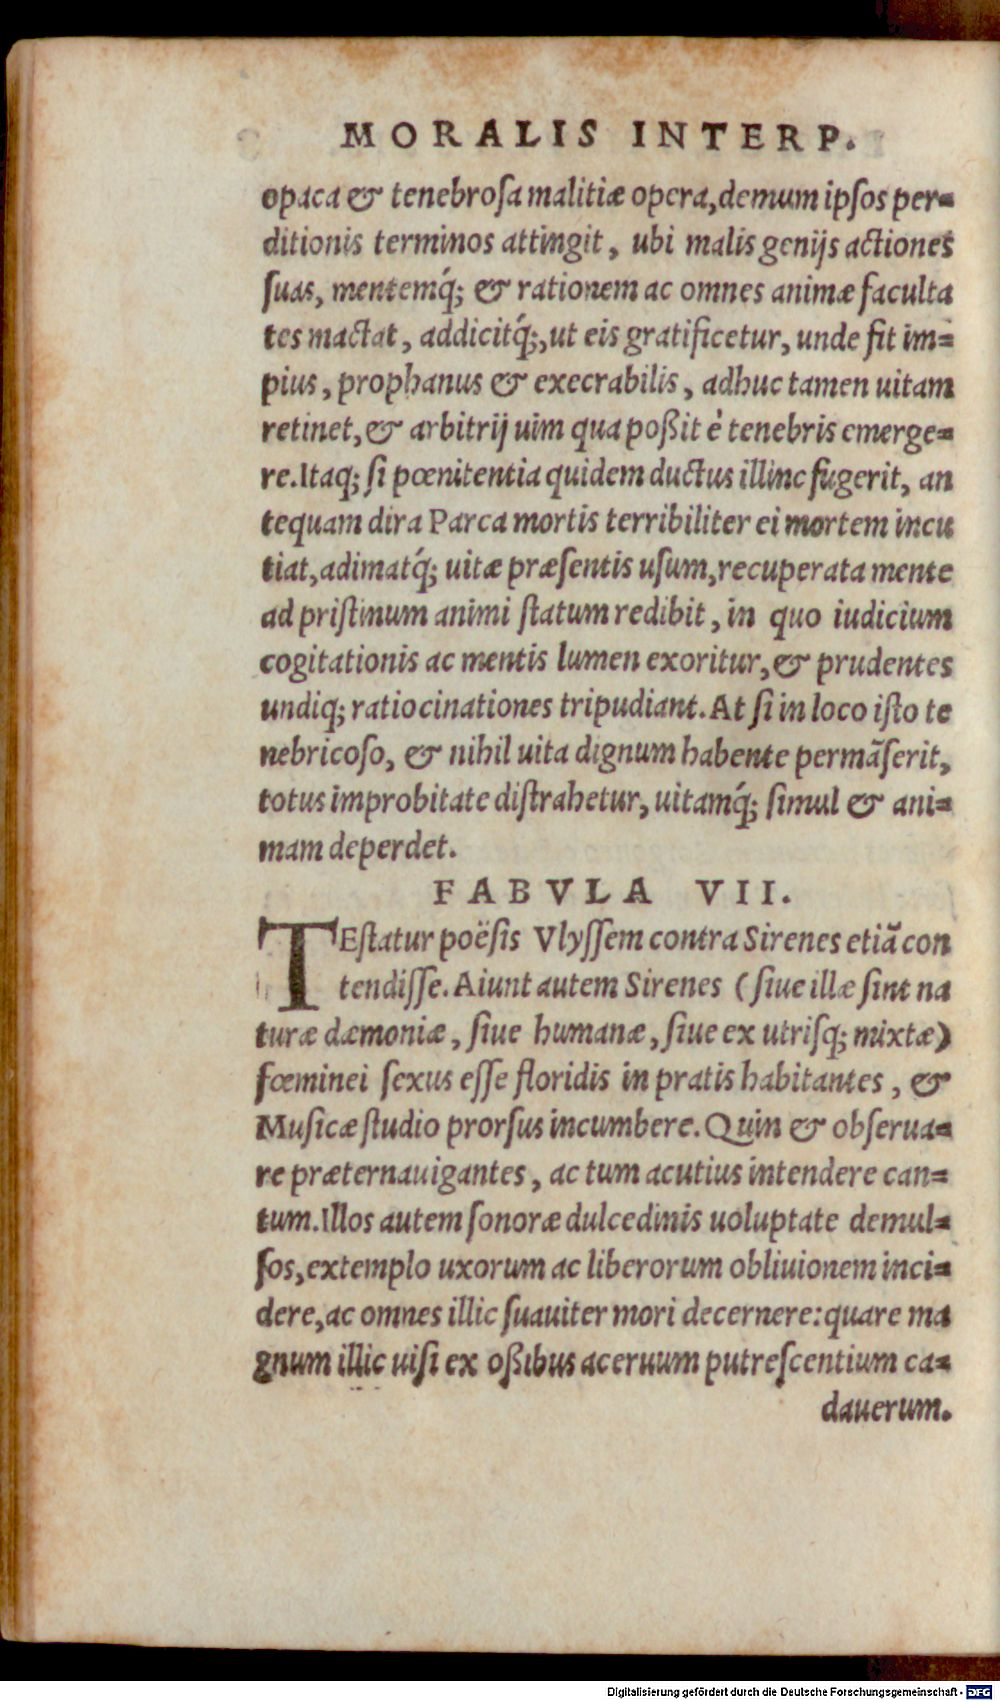 MORALIS INTERP.
opaca & tenebroſa malitiæ opera, demum ipſos per-
ditionis terminos attingit, ubi malis genijs actiones
ſuas, mentemq́; & rationem ac omnes animæ faculta
tes mactat, addicitq́;, ut eis gratificetur, unde fit im-
pius, prophanus & execrabilis, adhuc tamen uitam
retinet, & arbitrij uim qua poßit è tenebris emerge-
re. Itaq; ſi pœnitentia quidem ductus illinc fugerit, an
tequam dira Parca mortis terribiliter ei mortem incu
tiat, adimatq́; uitæ præſentis uſum, recuperata mente
ad priſtinum animi ſtatum redibit, in quo iudicium
cogitationis ac mentis lumen exoritur, & prudentes
undiq; ratiocinationes tripudiant. At ſi in loco iſto te
nebricoſo, & nihil uita dignum habente permãſerit,
totus improbitate diſtrahetur, uitamq́; ſimul & ani-
mam deperdet.
FABVLA VII.
TEſtatur poëſis Vlyſſem contra Sirenes etiã con
tendiſſe. Aiunt autem Sirenes (ſiue illæ ſint na
turæ dæmoniæ, ſiue humanæ, ſiue ex utriſq; mixtæ)
fœminei ſexus eſſe floridis in pratis habitantes, &
Muſicæ ſtudio prorſus incumbere. Quin & obſerua-
re præternauigantes, ac tum acutius intendere can-
tum. Illos autem ſonoræ dulcedinis uoluptate demul-
ſos, extemplo uxorum ac liberorum obliuionem inci-
dere, ac omnes illic ſuauiter mori decernere: quare ma
gnum illic uiſi ex oßibus aceruum putreſcentium ca-
dauerum.
Digitalisierung gefördert durch die Deutsche Forschungsgemeinschaft - DFG